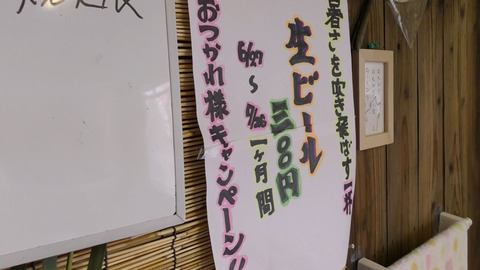 暑さを吹き飛ばす一杯
生ビール
三〇〇円
6/27～7/26一ヶ月間
おつかれ様キャンペーン!!